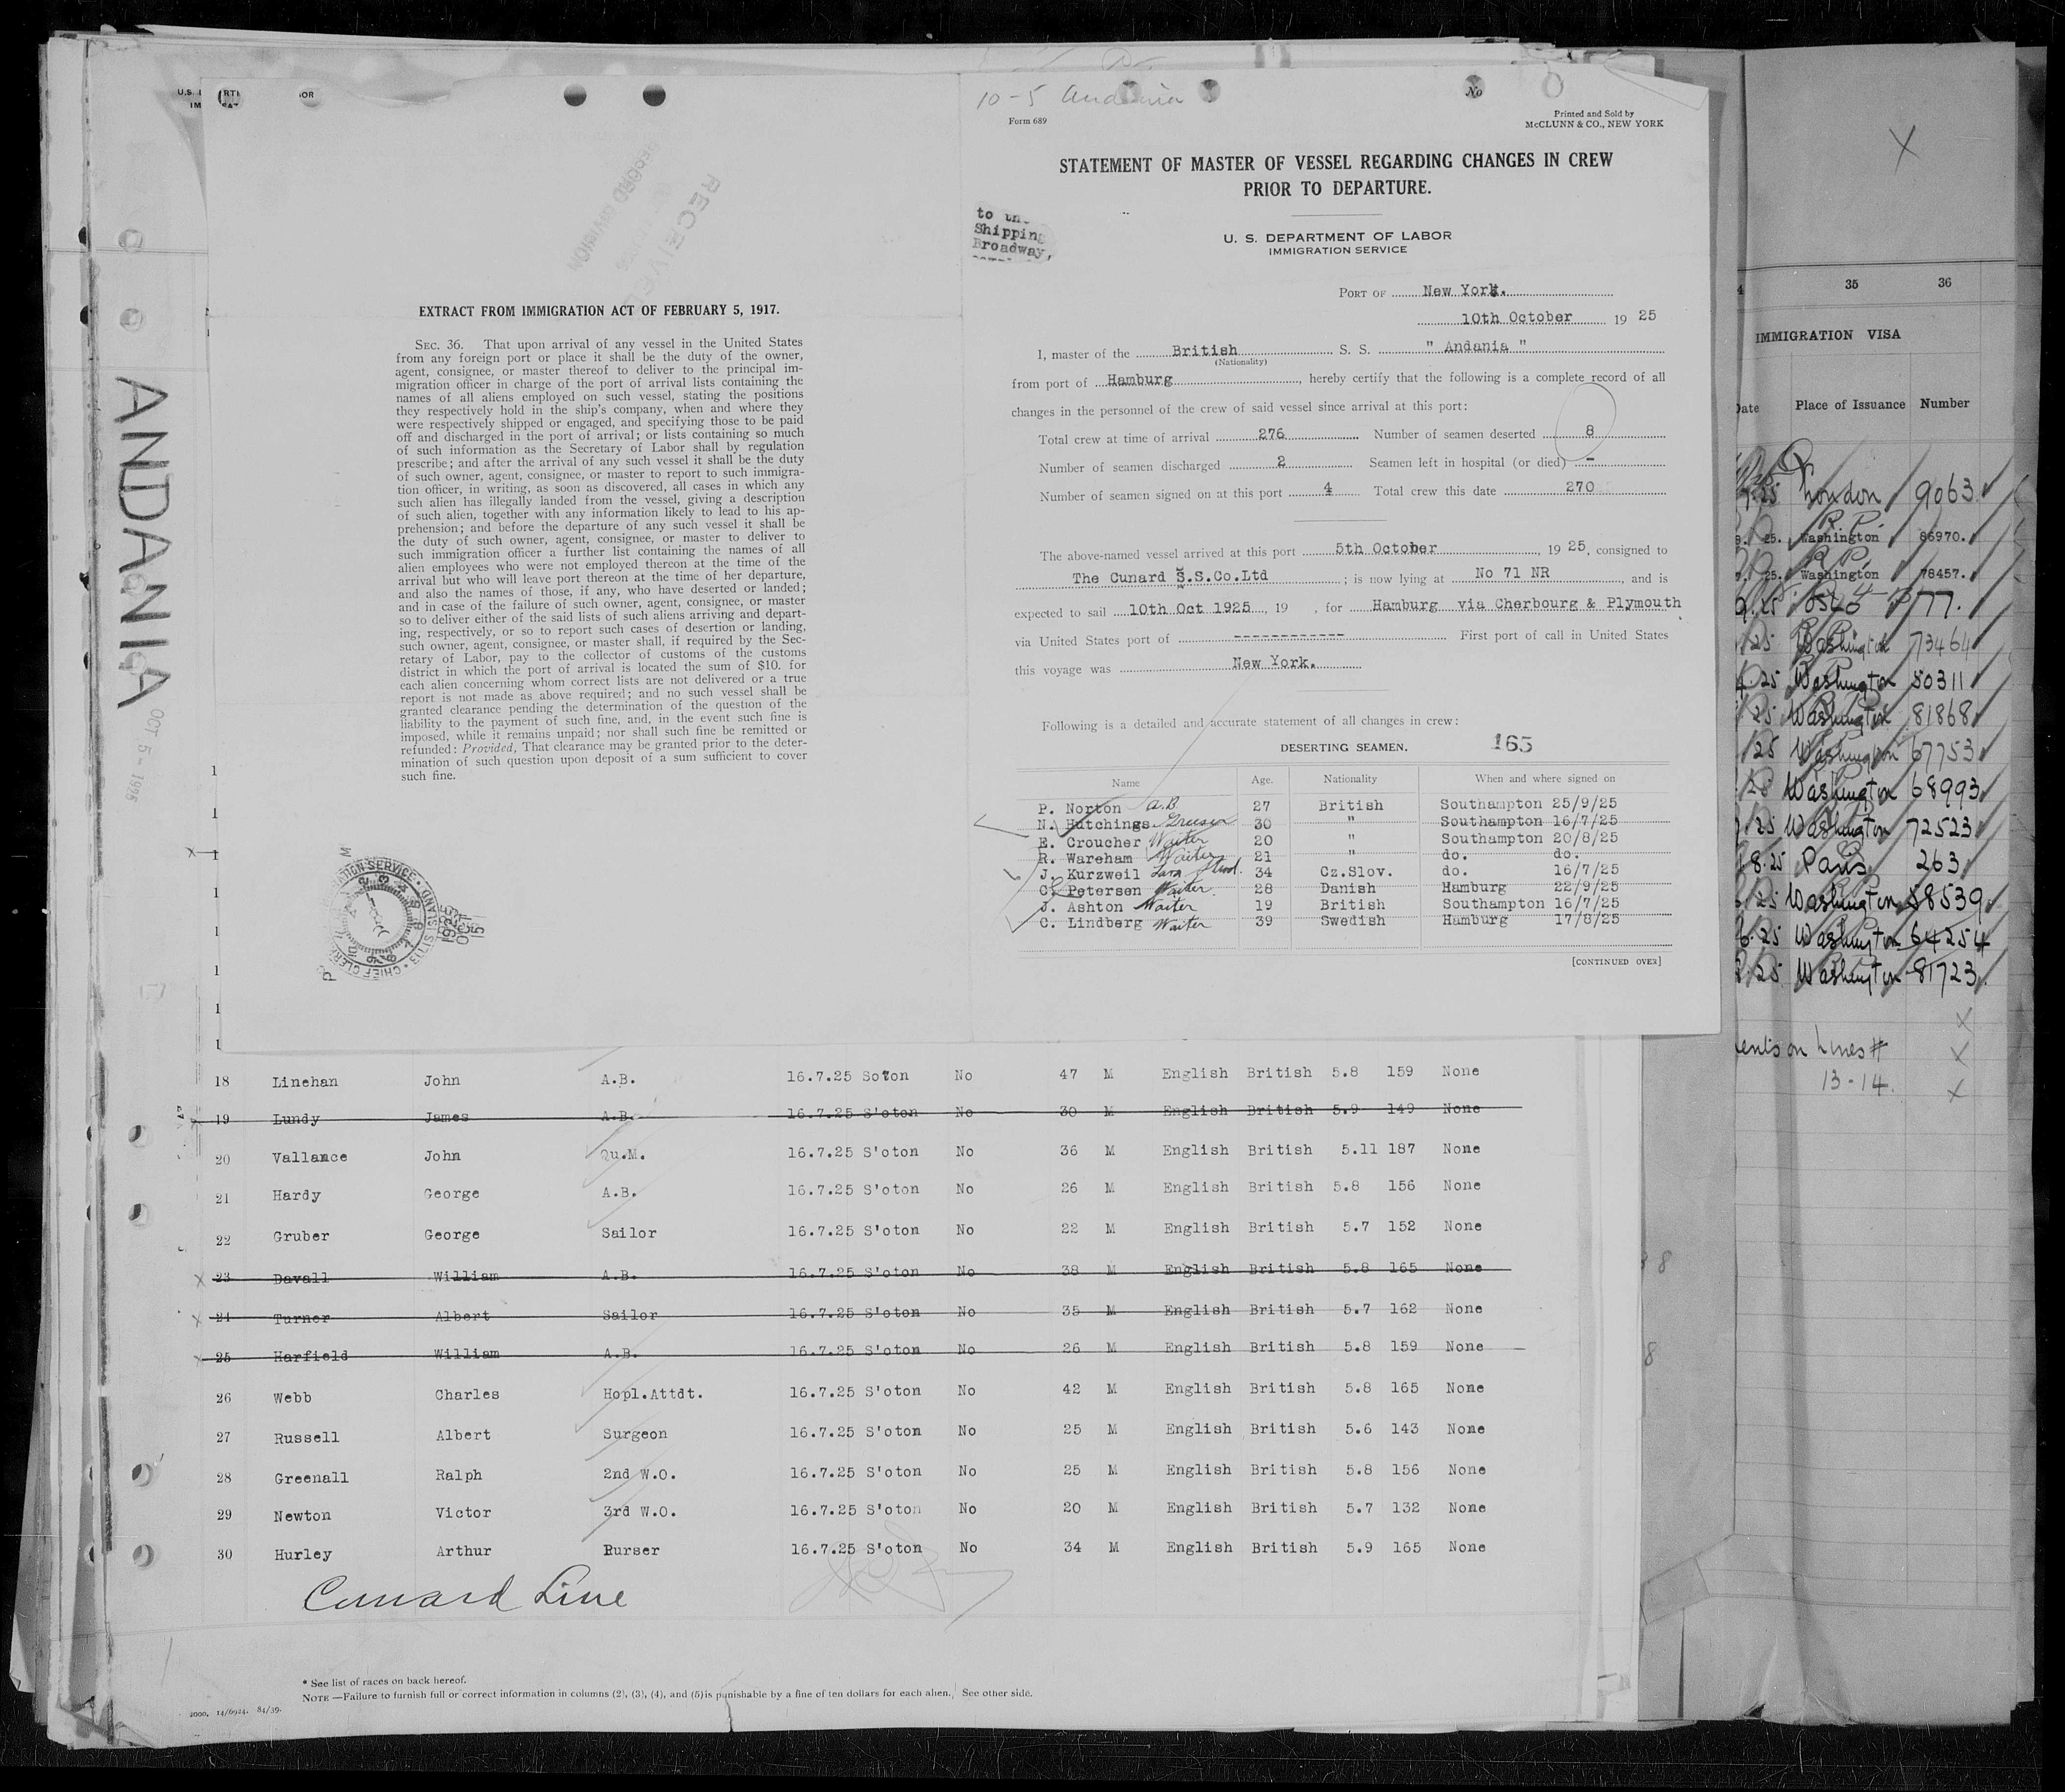 ANDANIA
OCT 5 - 1925
EXTRACT FROM IMMIGRATION ACT OF FEBRUARY 5, 1917.
SEC. 36. That upon arrival of any vessel in the United States
from any foreign port or place it shall be the duty of the owner,
agent, consignee, or master thereof to deliver to the principal im-
migration officer in charge of the port of arrival lists containing the
names of all aliens employed on such vessel, stating the positions
they respectively hold in the ship's company, when and where they
were respectively shipped or engaged, and specifying those to be paid
off and discharged in the port of arrival; or lists containing so much
of such information as the Secretary of Labor shall by regulation
prescribe; and after the arrival of any such vessel it shall be the duty
of such owner, agent, consignee, or master to report to such immigra-
tion officer, in writing, as soon as discovered, all cases in which any
such alien has illegally landed from the vessel, giving a description
of such alien, together with any information likely to lead to his ap-
prehension; and before the departure of any such vessel it shall be
the duty of such owner, agent, consignee, or master to deliver to
such immigration officer a further list containing the names of all
alien employees who were not employed thereon at the time of the
arrival but who will leave port thereon at the time of her departure,
and also the names of those, if any, who have deserted or landed;
and in case of the failure of such owner, agent, consignee, or master
so to deliver either of the said lists of such aliens arriving and depart-
ing, respectively, or so to report such cases of desertion or landing,
such owner, agent, consignee, or master shall, if required by the Sec-
retary of Labor, pay to the collector of customs of the customs
district in which the port of arrival is located the sum of $10. for
each alien concerning whom correct lists are not delivered or a true
report is not made as above required; and no such vessel shall be
granted clearance pending the determination of the question of the
liability to the payment of such fine, and, in the event such fine is
imposed, while it remains unpaid; nor shall such fine be remitted or
refunded: Provided, That clearance may be granted prior to the deter-
mination of such question upon deposit of a sum sufficient to cover
such fine.
RECEIVED
RECORD DIVISION
10-5 Andania
No
Form 689
Printed and Sold by
McCLUNN & CO., NEW YORK
STATEMENT OF MASTER OF VESSEL REGARDING CHANGES IN CREW
PRIOR TO DEPARTURE.
to the
Shipping
Broadway,
U. S. DEPARTMENT OF LABOR
IMMIGRATION SERVICE
PORT OF New York.
10th October 19 25
I, master of the British S. S. " Andania "
(Nationality)
from port of Hamburg, hereby certify that the following is a complete record of all
changes in the personnel of the crew of said vessel since arrival at this port:
Total crew at time of arrival 276 Number of seamen deserted 8
Number of seamen discharged 2 Seamen left in hospital (or died) -
Number of seamen signed on at this port 4 Total crew this date 270
The above-named vessel arrived at this port 5th October, 19 25, consigned to
The Cunard S.S.Co.Ltd ; is now lying at No 71 NR, and is
expected to sail 10th Oct 1925, 19 , for Hamburg via Cherbourg & Plymouth
via United States port of ------------ First port of call in United States
this voyage was New York.
Following is a detailed and accurate statement of all changes in crew:
DESERTING SEAMEN. 165
Name Age. Nationality When and where signed on
P. Norton A.B. 27 British Southampton 25/9/25
N. Hutchings Greaser 30 " Southampton 16/7/25
E. Croucher Waiter 20 " Southampton 20/8/25
R. Wareham Waiter 21 " do. do.
J. Kurzweil 34 Cz.Slov. do. 16/7/25
C. Petersen Waiter 28 Danish Hamburg 22/9/25
J. Ashton Waiter 19 British Southampton 16/7/25
C. Lindberg Waiter 39 Swedish Hamburg 17/8/25
[CONTINUED OVER]
18 Linehan John A.B. 16.7.25 Soton No 47 M English British 5.8 159 None
19 Lundy James A.B. 16.7.25 S'oton No 30 M English British 5.9 149 None
20 Vallance John Qu.M. 16.7.25 S'oton No 36 M English British 5.11 187 None
21 Hardy George A.B. 16.7.25 S'oton No 26 M English British 5.8 156 None
22 Gruber George Sailor 16.7.25 S'oton No 22 M English British 5.7 152 None
23 Davall William A.B. 16.7.25 S'oton No 38 M English British 5.8 165 None
24 Turner Albert Sailor 16.7.25 S'oton No 35 M English British 5.7 162 None
25 Harfield William A.B. 16.7.25 S'oton No 26 M English British 5.8 159 None
26 Webb Charles Hopl.Attdt. 16.7.25 S'oton No 42 M English British 5.8 165 None
27 Russell Albert Surgeon 16.7.25 S'oton No 25 M English British 5.6 143 None
28 Greenall Ralph 2nd W.O. 16.7.25 S'oton No 25 M English British 5.8 156 None
29 Newton Victor 3rd W.O. 16.7.25 S'oton No 20 M English British 5.7 132 None
30 Hurley Arthur Purser 16.7.25 S'oton No 34 M English British 5.9 165 None
Cunard Line
* See list of races on back hereof.
NOTE —Failure to furnish full or correct information in columns (2), (3), (4), and (5) is punishable by a fine of ten dollars for each alien. See other side.
2000. 14/6924. 84/39.
35 36
IMMIGRATION VISA
Date Place of Issuance Number
25 London 9063
R.P.
25. Washington 86970.
R.P.
25. Washington 78457.
25 Oslo 77.
25 Washington 73464
25 Washington 50311
25 Washington 81868
25 Washington 67753
25 Washington 68993
25 Washington 72523
8.25 Paris 263
25 Washington 58539
25 Washington 64254
25 Washington 81723
on Lines #
13-14.